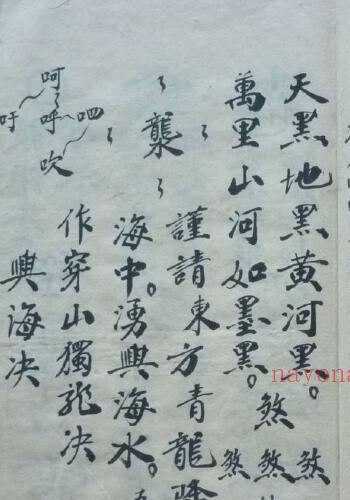 天黑地黑黄河黑。
萬里山河如墨黑。煞
煞煞煞
襲
謹請東方青龍降
海中。湧興海水。
作穿山獨龍决
興海决
呵呼吹
呬
吁
nayona